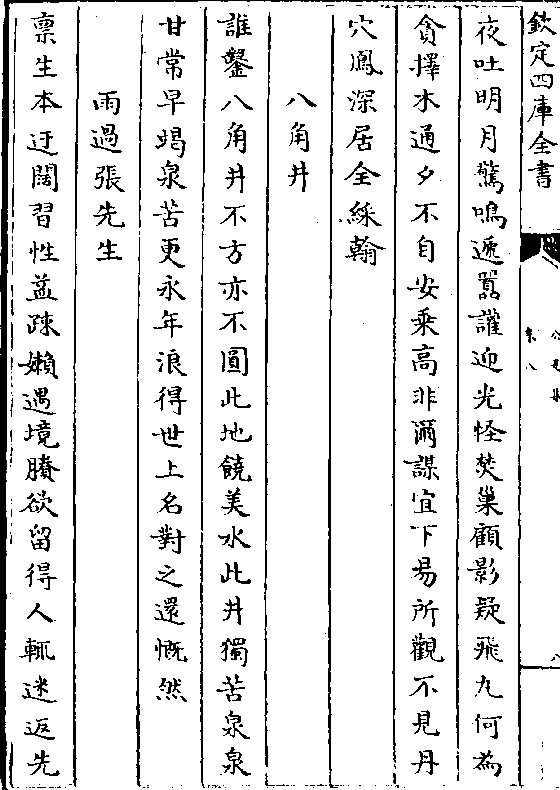 欽定四庫全書
卷八
八
夜吐明月驚鳴遞囂讙迎光怪焚巢顧影疑飛丸何為
貪擇木通夕不自安乗高非爾謀宜下易所觀不見丹
穴鳳深居全綵翰
八角井
誰鑿八角井不方亦不圓此地饒美水此井獨苦泉泉
甘常早竭泉苦更永年浪得世上名對之還慨然
雨過張先生
禀生本迂闊習性益疎嬾遇境賸欲留得人輒迷返先